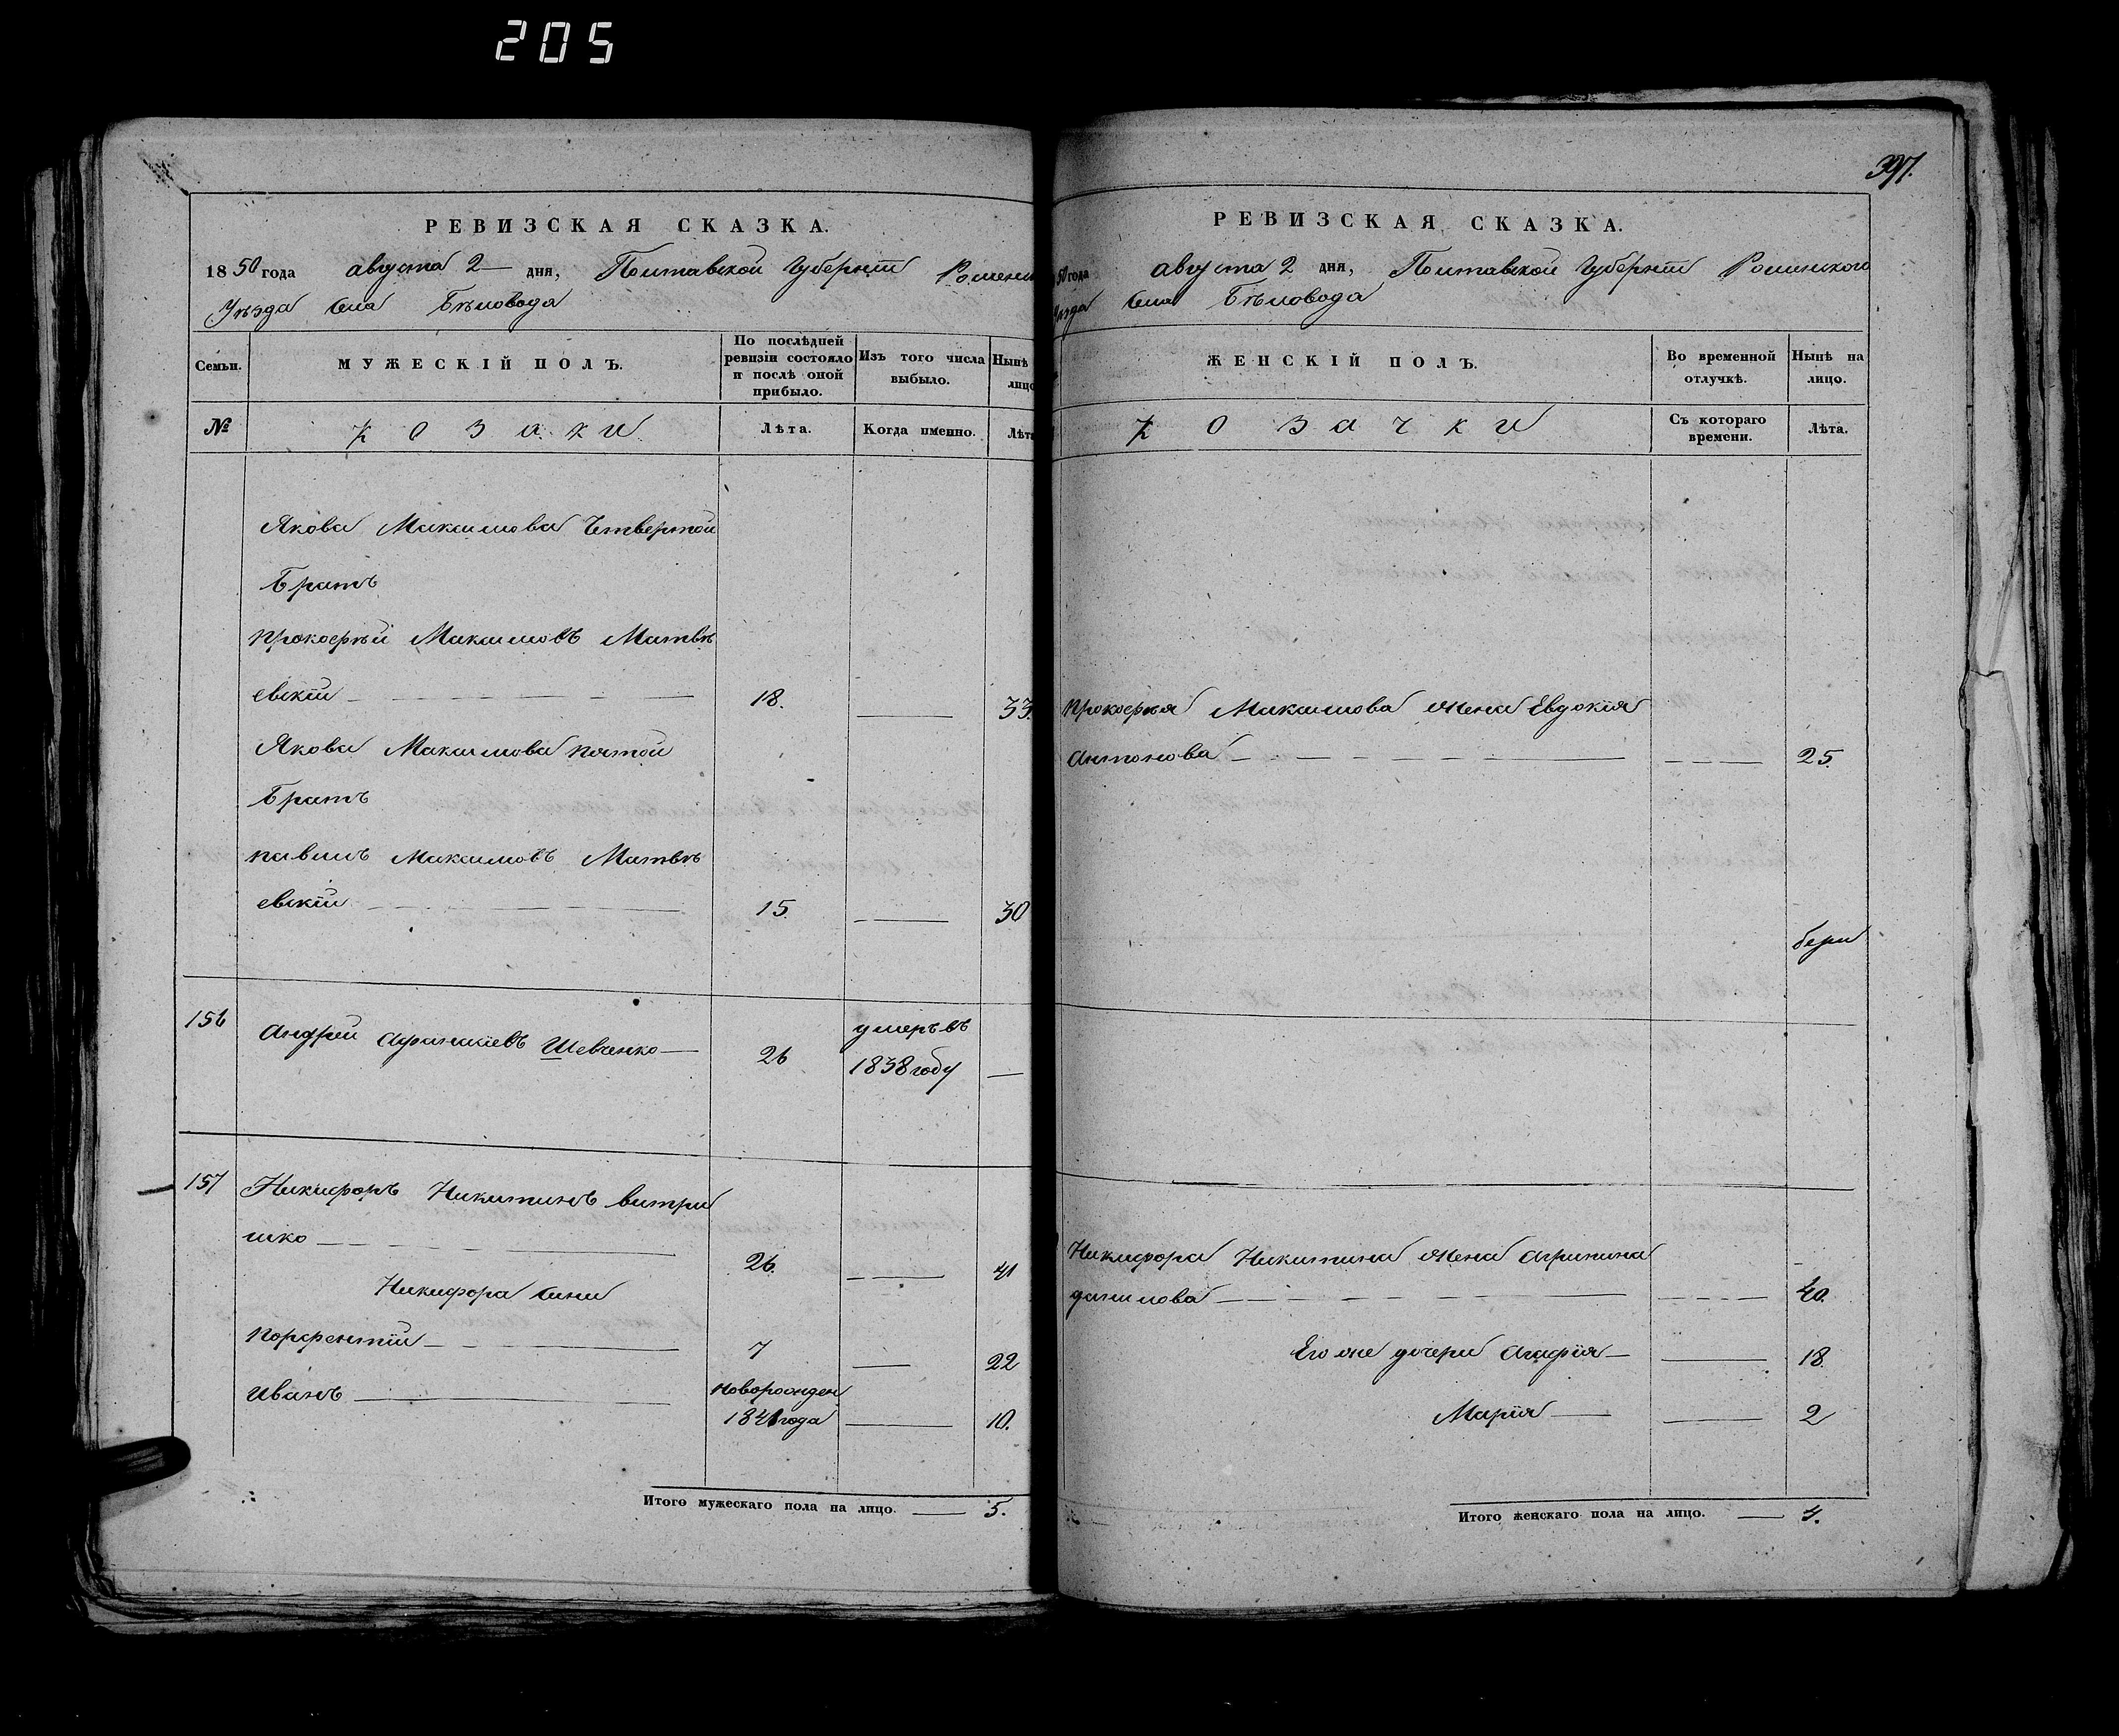 205
РЕВИЗСКАЯ СКАЗКА.
1850 года августа 2 дня, Полтавской Губерніи Роменс
Уѣзда Села Бѣловода
Семьи.
МУЖЕСКІЙ ПОЛЪ.
По послѣдней ревизіи состояло и послѣ оной прибыло.
Изъ того числа выбыло.
Нынѣ лицо
№
Козаки
Лѣта.
Когда именно.
Лѣта
Якова Максимова Четвертой
Братъ
Прокофѣй Максимовъ Матвѣ
евскій 18. 33.
Якова Максимова пятой
Братъ
Павилъ Максимовъ Матвѣ
евскій 15. 30
156 Андрей Афанасіевъ Шевченко 26
умеръ въ
1838 году
157 Никифоръ Никитинъ витри
шко 26. 41
Никифора Сини
Порфентій 7 22
Иванъ новорожден
1841 года 10.
Итого мужескаго пола на лицо. 5.
397.
РЕВИЗСКАЯ СКАЗКА.
50 года августа 2 дня, Полтавской Губерніи Роменского
Уѣзда Села Бѣловода
ЖЕНСКІЙ ПОЛЪ.
Во временной отлучкѣ.
Нынѣ на лицо.
Козачки
Съ котораго времени.
Лѣта.
Прокофѣя Максимова жена Евдокія
Антонова 25.
Никифора Никитина жена Агрипина
данилова 40.
Его же дочери Агафія 18.
Марія 2
Итого женскаго пола на лицо. 4.